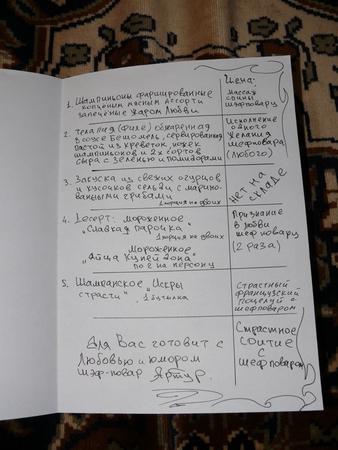 1. Шампиньоны фаршированные
копчёным мясным ассорти
запечённые жаром Любви
Цена:
массаж
спины
шефповару
2. Телапея (филе) обжаренная
в соусе Бешомель, сервированная
пастой из креветок, ножек
шампиньонов и 2х сортов
сыра с зеленью и помидорами
Исполнение
одного
желания
шефповара
(любого)
3. Закуска из свежих огурцов
и кусочков сельди с марино-
ванными грибами
1 порция на двоих
Нет на
складе
4. Десерт: мороженное
"Сладкая парочка"
1 порция на двоих
Мороженное
"Яйца Купей дона"
по 2 на персону
Признание
в любви
шефповару
(2 раза)
5. Шампанское "Искры
страсти". 1 бутылка
Страстный
французский
поцелуй с
шефповаром
Для Вас готовит с
Любовью и юмором
шэф-повар Артур.
Страстное
соитие
с
шефповаром